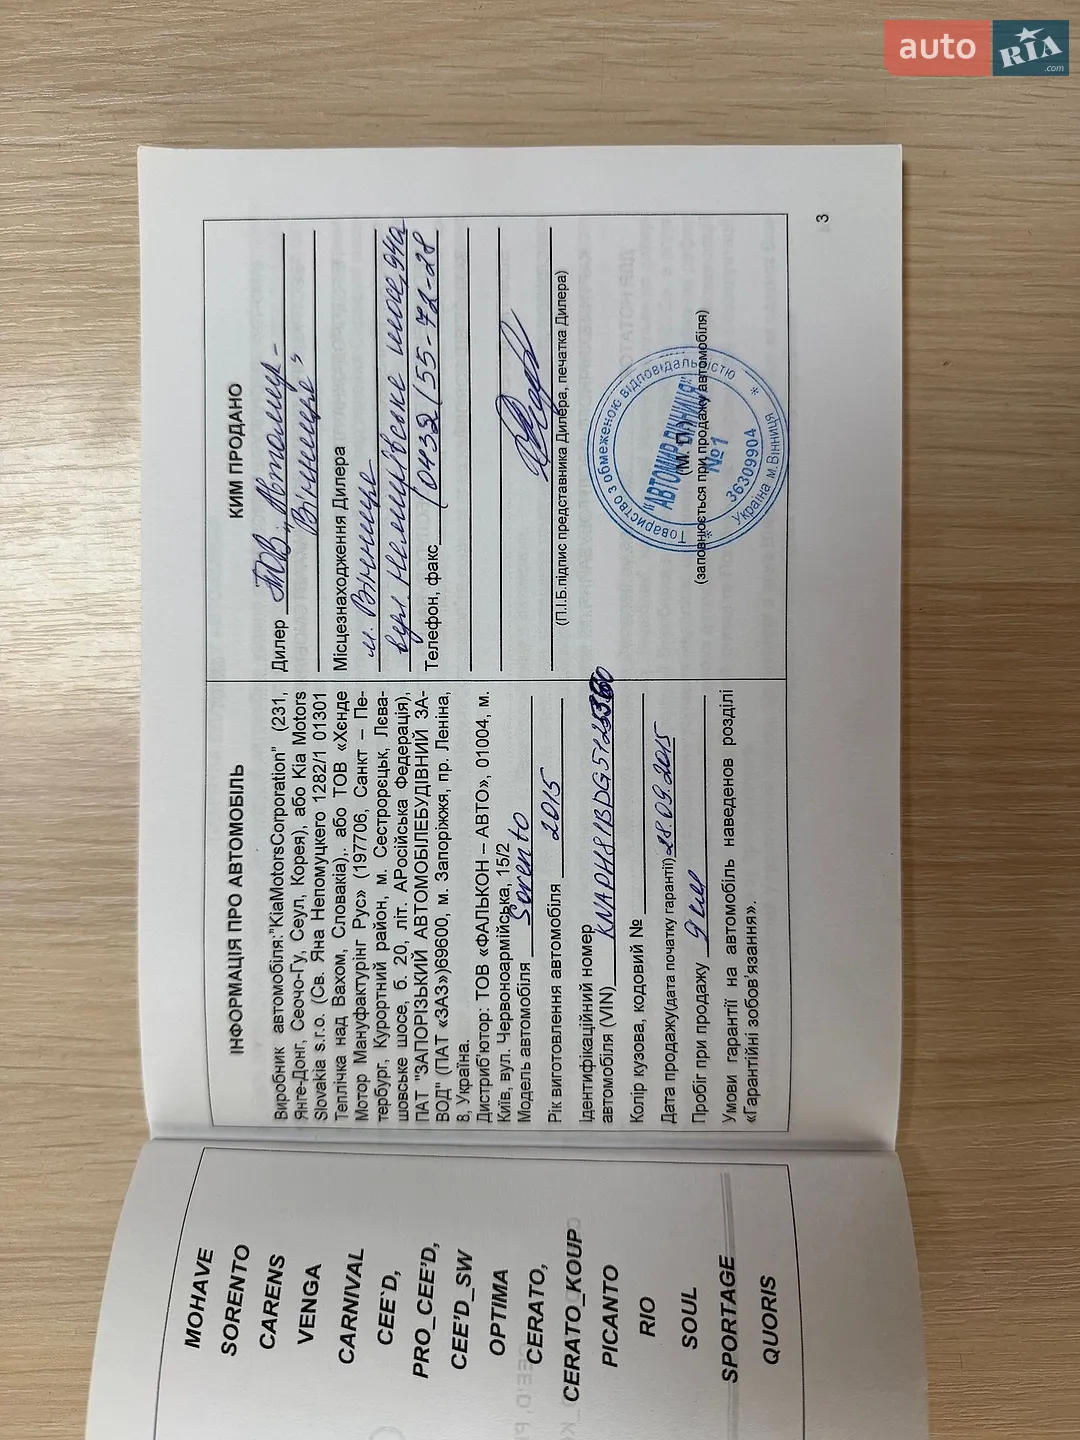 auto RIA.com
MOHAVE
SORENTO
CARENS
VENGA
CARNIVAL
CEE`D,
PRO_CEE'D,
CEE'D_SW
OPTIMA
CERATO,
CERATO_KOUP
PICANTO
RIO
SOUL
SPORTAGE
QUORIS
ІНФОРМАЦІЯ ПРО АВТОМОБІЛЬ
Виробник автомобіля:"KiaMotorsCorporation" (231,
Янге-Донг, Сеочо-Гу, Сеул, Корея), або Kia Motors
Slovakia s.r.o. (Св. Яна Непомуцкего 1282/1 01301
Теплічка над Вахом, Словакія),. або ТОВ «Хєнде
Мотор Мануфактурінг Рус» (197706, Санкт – Пе-
тербург, Курортний район, м. Сестрорєцьк, Лєва-
шовське шосе, б. 20, літ. АРосійська Федерація),
ПАТ "ЗАПОРІЗЬКИЙ АВТОМОБІЛЕБУДІВНИЙ ЗА-
ВОД" (ПАТ «ЗАЗ»)69600, м. Запоріжжя, пр. Леніна,
8, Україна.
Дистриб'ютор: ТОВ «ФАЛЬКОН – АВТО», 01004, м.
Київ, вул. Червоноармійська, 15/2
Модель автомобіля Sorento
Рік виготовлення автомобіля 2015
Ідентифікаційний номер
автомобіля (VIN)
Колір кузова, кодовий №
Дата продажу(дата початку гарантії) 28.09.2015
Пробіг при продажу 9 км
Умови гарантії на автомобіль наведенов розділі
«Гарантійні зобов'язання».
КИМ ПРОДАНО
Дилер ТОВ „Автомир -
Вінниця"
Місцезнаходження Дилера
м. Вінниця
вул. Немирівське шосе, 94а
Телефон, факс (0432) 55-72-28
(П.І.Б.підпис представника Дилера, печатка Дилера)
Товариство з обмеженою відповідальністю
"АВТОМИР ВІННИЦЯ"
№1
36309904
Україна м.Вінниця
(М. П.)
(заповнюється при продажу автомобіля)
3